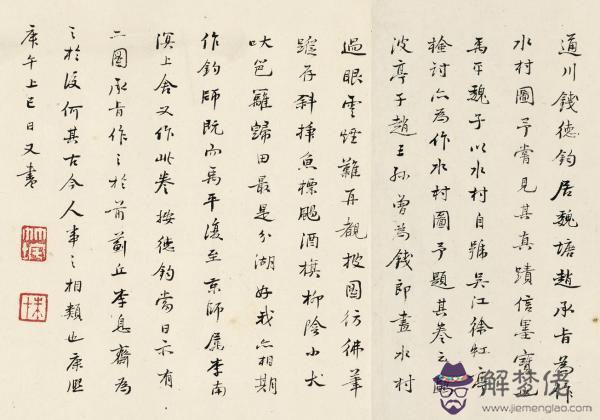 通川錢德鈞居魏塘趙承旨為作
水村圖予嘗見其真蹟信墨寶也
禹平魏子以水村自號吳江徐虹亭
檢討六為作水村圖予題其卷云
波亭子趙王孫曾為錢郎畫水村
過眼雲煙難再覩披圖彷彿筆
蹤存斜揷魚標颺酒旗柳陰小犬
吠笆籬歸田最是分湖好我六相期
作釣師既而禹平復至京師屬李南
溟上舍又作此卷按德鈞當日亦有
二圖承旨作之於前薊丘李息齋為
之於後何其古今人事之相類也康熙
庚午上巳日又書
解夢佬
www.jiemenglao.com